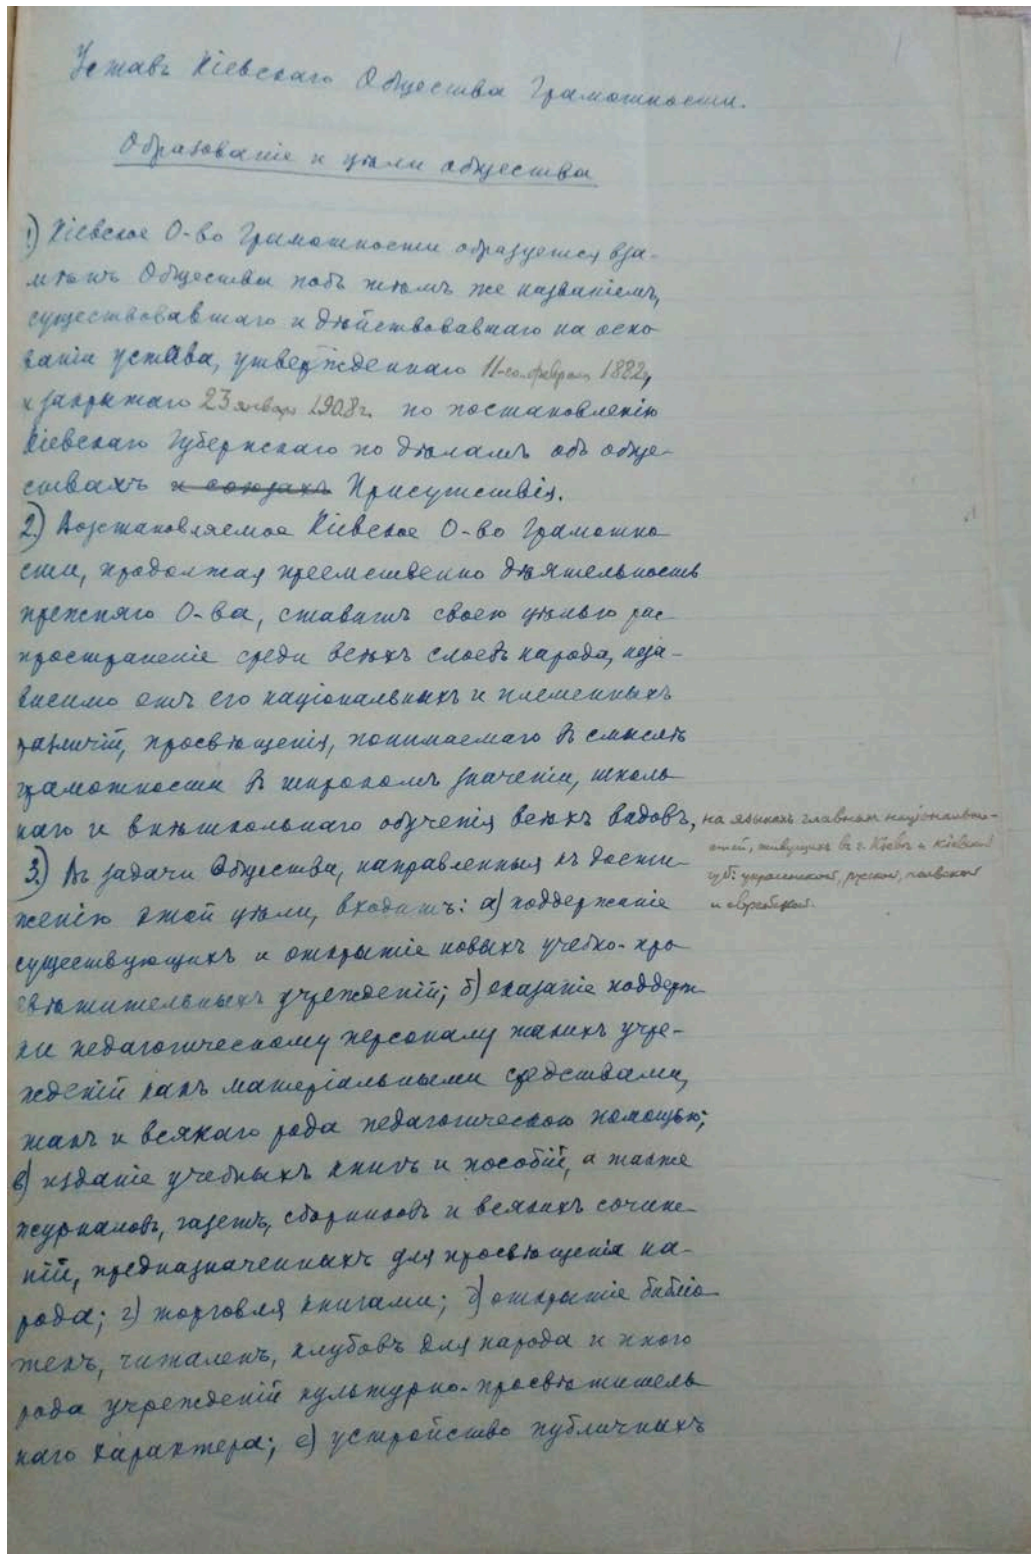 Уставъ Кіевскаго Общества Грамотности.
Образованіе и цѣли общества
1) Кіевское О-во Грамотности образуется вза-
мѣнъ Общества подъ тѣмъ же названіемъ,
существовавшаго и дѣйствовавшаго на осно
ваніи устава, утвержденнаго 11-го февраля 1882г,
и закрытаго 23 января 1908г. по постановленію
Кіевскаго Губернскаго по дѣламъ объ обще-
ствахъ и союзахъ Присутствія.
2.) Возстановляемое Кіевское О-во Грамотно
сти, продолжая преемственно дѣятельность
прежняго О-ва, ставитъ своею цѣлью рас
пространеніе среди всѣхъ слоевъ народа, неза-
висимо отъ его національныхъ и племенныхъ
различій, просвѣщенія, понимаемаго въ смыслѣ
грамотности въ широкомъ значеніи, школь
наго и внѣшкольнаго обученія всѣхъ видовъ,
на языкахъ главныхъ національно-
стей, живущихъ въ г. Кіевѣ и Кіевской
губ: украинской, русской, польской
и еврейской.
3.) Въ задачи Общества, направленныя къ дости-
женію этой цѣли, входитъ: а) поддержаніе
существующихъ и открытіе новыхъ учебно-про
свѣтительныхъ учрежденій; б) оказаніе поддерж
ки педагогическому персоналу такихъ учре-
жденій какъ матеріальными средствами,
такъ и всякаго рода педагогическою помощью;
в) изданіе учебныхъ книгъ и пособій, а также
журналовъ, газетъ, сборниковъ и всякихъ сочине
ній, предназначенныхъ для просвѣщенія на-
рода; г) торговля книгами; д) открытіе библіо
текъ, читаленъ, клубовъ для народа и иного
рода учрежденій культурно-просвѣтитель
наго характера; е) устройство публичныхъ